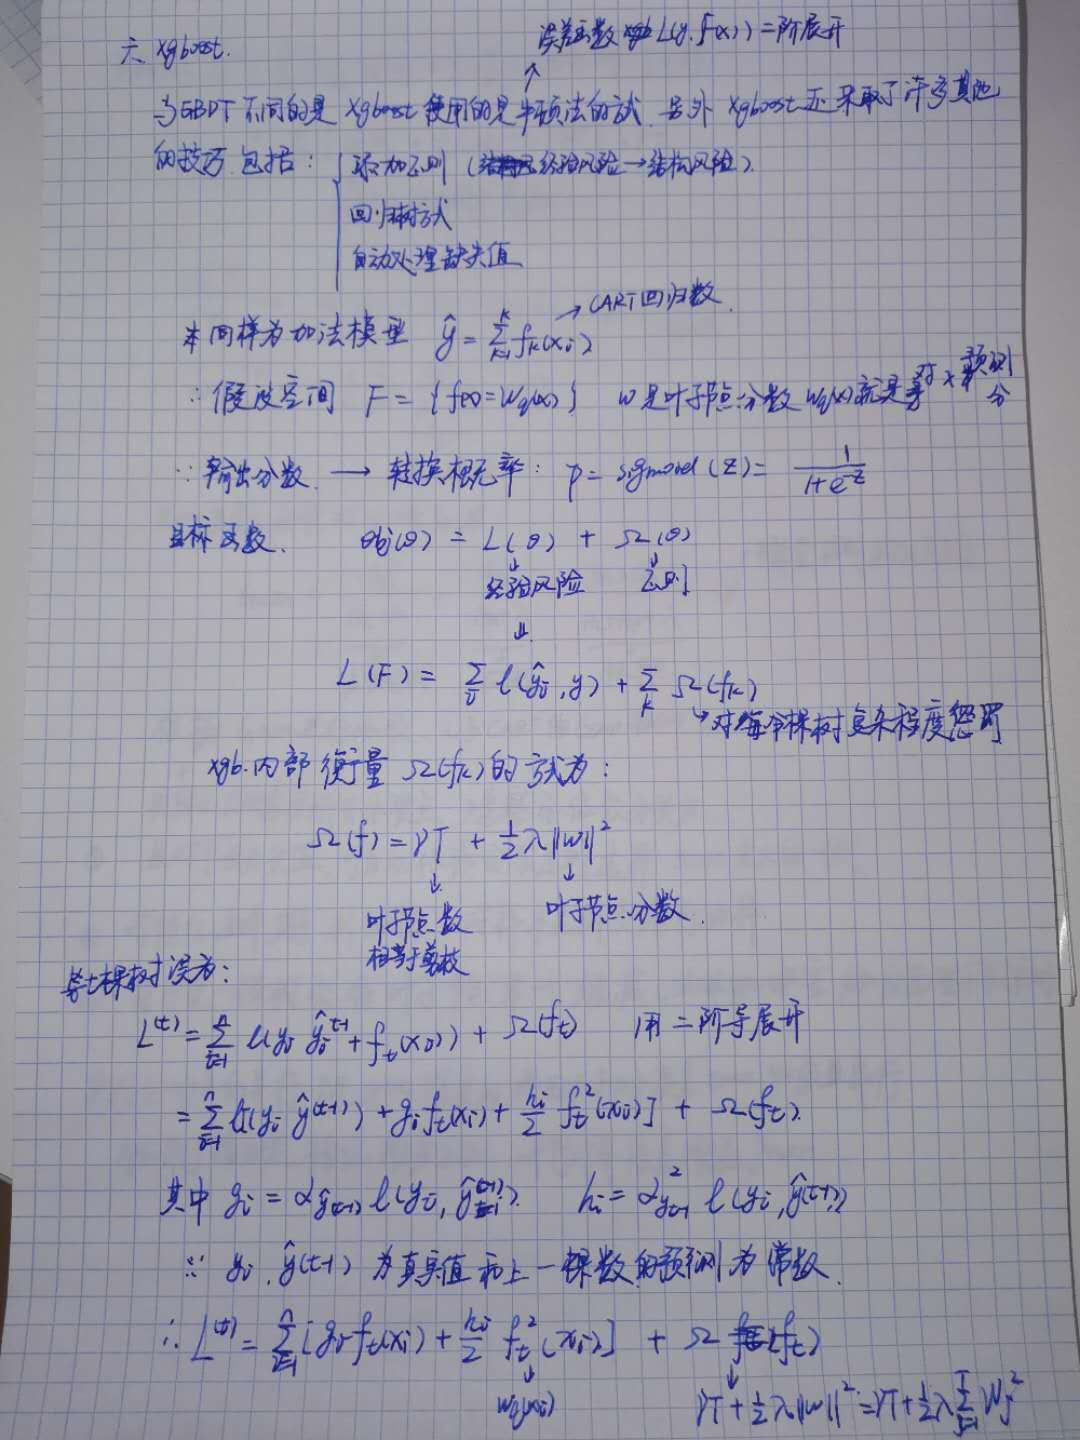 六 xgboost.
误差函数 L(y, f(x)) 二阶展开
与GBDT不同的是 xgboost 使用的是牛顿法的方式, 另外 xgboost 还采取了许多其他
的技巧 包括:
添加正则 (经验风险→结构风险).
回归树方式
自动处理缺失值
本同样为加法模型 ŷ = Σ_{k=1}^{K} f_k(x_i) → CART回归数.
∴ 假设空间 F = {f(x) = W_q(x)} w是叶子节点分数 W_q(x)就是对x预测分
∵ 输出分数. → 转换概率: p = sigmoid(z) = 1/(1+e^{-z})
目标函数. obj(θ) = L(θ) + Ω(θ)
经验风险 正则
↓
L(F) = Σ_i l(ŷ_i, y) + Σ_k Ω(f_k)
↳ 对每个棵树复杂程度惩罚
xgb.内部衡量 Ω(f_k)的方式为:
Ω(f) = γT + ½λ||w||²
叶子节点数 叶子节点分数.
相当于剪枝
第t棵树误为:
L^{(t)} = Σ_{i=1}^{n} l(y_i ŷ_i^{t-1} + f_t(x_i)) + Ω(f_t) 用二阶导展开
= Σ_{i=1}^{n} [l(y_i ŷ^{(t-1)}) + g_i f_t(x_i) + h_i/2 f_t²(x_i)] + Ω(f_t).
其中 g_i = ∂_{ŷ(t-1)} l(y_i, ŷ^{(t-1)}). h_i = ∂²_{y t-1} l(y_i, ŷ(t-1))
∵ y_i, ŷ(t-1) 为真实值和上一棵数的预测为常数.
∴ L^{(t)} = Σ_{i=1}^{n} [g_i f_t(x_i) + h_i/2 f_t²(x_i)] + Ω(f_t)
W_q(x_i) γT + ½λ||w||² = γT + ½λ Σ_{j=1}^{T} W_j²